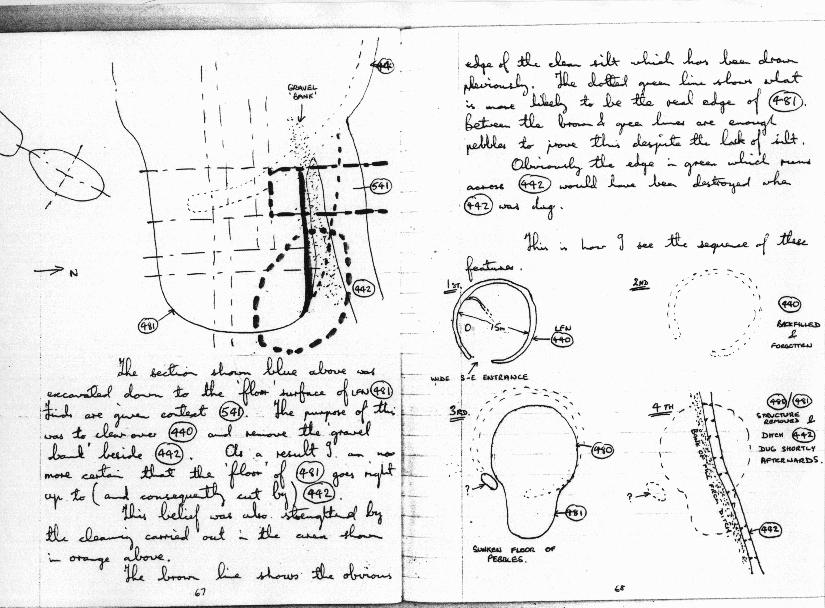 GRAVEL
BANK'
44
541
N
442
481
The section shown blue above was
excavated down to the 'floor' surface of LFN 481
Finds are given context 541. The purpose of this
was to clean over 440 and remove the 'gravel
bank' beside 442. As a result I am now
more certain that the 'floor' of 481 goes right
up to (and consequently cut by) 442.
This belief was also strengthened by
the cleaning carried out in the area shown
in orange above.
The brown line shows the obvious
67
edge of the clean silt which has been drawn
previously. The dotted green line shows what
is more likely to be the real edge of 481.
Between the brown & green lines are enough
pebbles to prove this despite the lack of silt.
Obviously the edge in green which runs
across 442 would have been destroyed when
442 was dug.
This is how I see the sequence of these
features.
1ST.
15m
LFN
440
WIDE S-E ENTRANCE
2ND
440
BACKFILLED
&
FORGOTTEN
3RD.
480
?
481
SUNKEN FLOOR OF
PEBBLES.
4TH
480 481
STRUCTURE
REMOVED &
DITCH 442
DUG SHORTLY
AFTERWARDS.
?
442
68